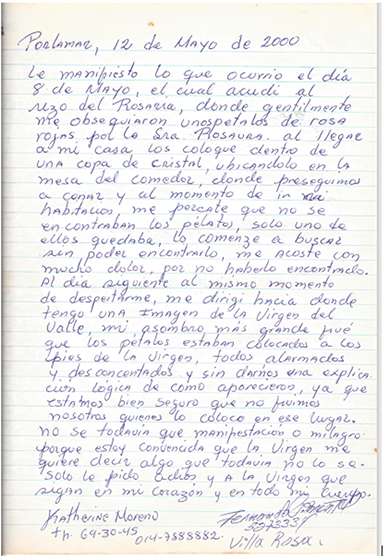 Porlamar, 12 de Mayo de 2000
Le manifiesto lo que ocurrio el día
8 de Mayo, el cual acudi al
rezo del Rosaria, donde gentilmente
me obsequiaron unos petalos de rosa
rojas por la Sra. Rosaura. al llegar
a mi casa los coloque dentro de
una copa de cristal, ubicandolo en la
mesa del comedor, donde preseguimos
a cenar y al momento de ir mi
habitación me percate que no se
encontraban los pétalos, solo uno de
ellos quedaba, lo comenze a buscar
sin poder encontrarlo, me acoste con
mucho dolor, por no haberlo encontrado.
Al día siguiente al mismo momento
de despertarme, me dirigi hacia donde
tengo una Imagen de la Virgen del
Valle, mi asombro más grande fué
que los pétalos estaban colocados a los
pies de la Virgen, todos alarmados
y desconcentados y sin darnos una explica-
ción lógica de como aparecieron, ya que
estamos bien seguro que no fuimos
nosotros quienes lo coloco en ese lugar.
no se todavía que manifestación o milagro
porque estoy convencida que la Virgen me
quiere decir algo que todavía no lo se.
Solo le pido a Dios y a la Virgen que
sigan en mi corazón y en todo mi cuerpo.
Katherine Moreno
th. 64-30-45
014-7888882.
Fernando
Villa Rosa.